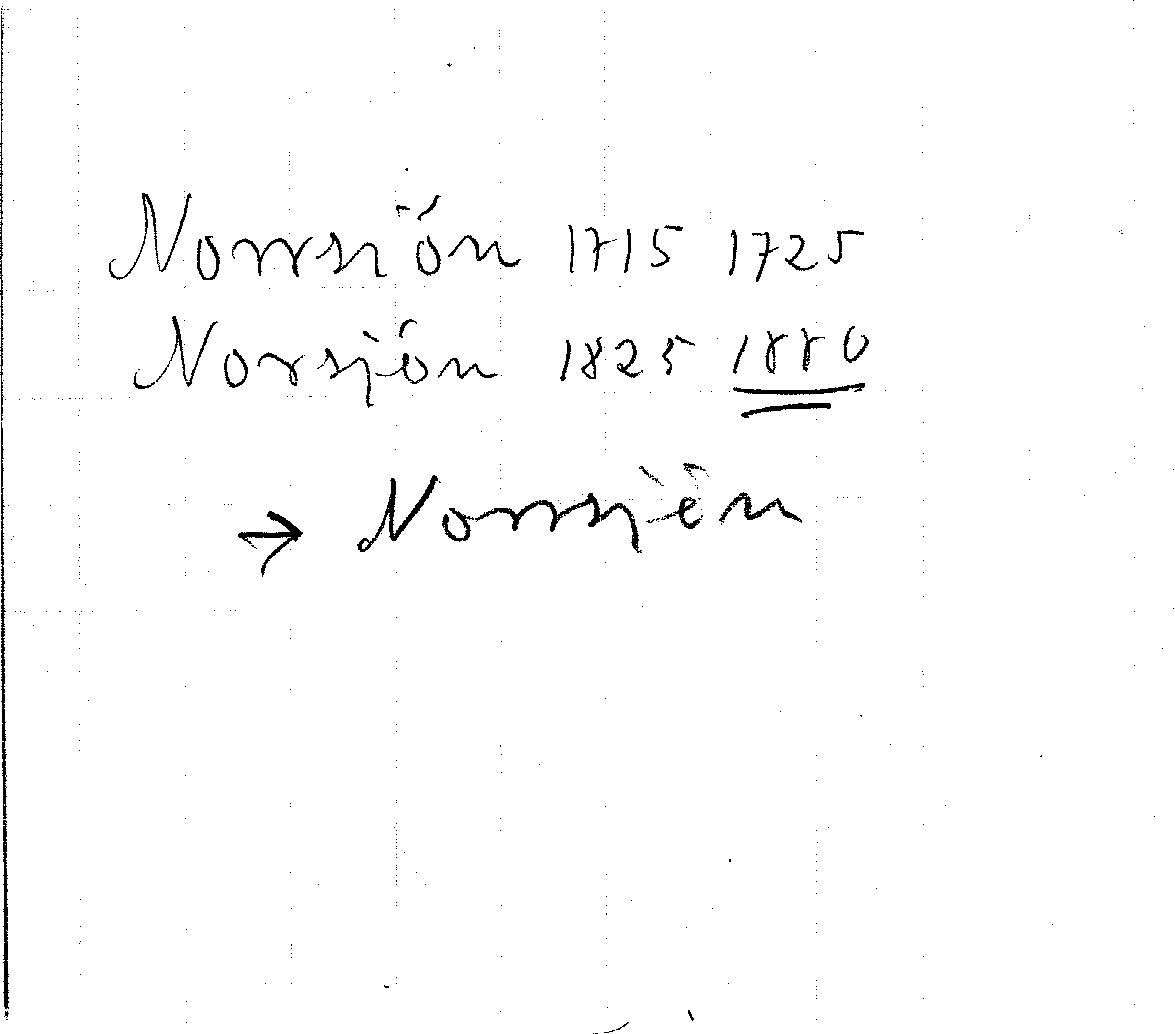 Norrsiön 1715 1725
Norsjön 1825 1880
→ Norrsjën